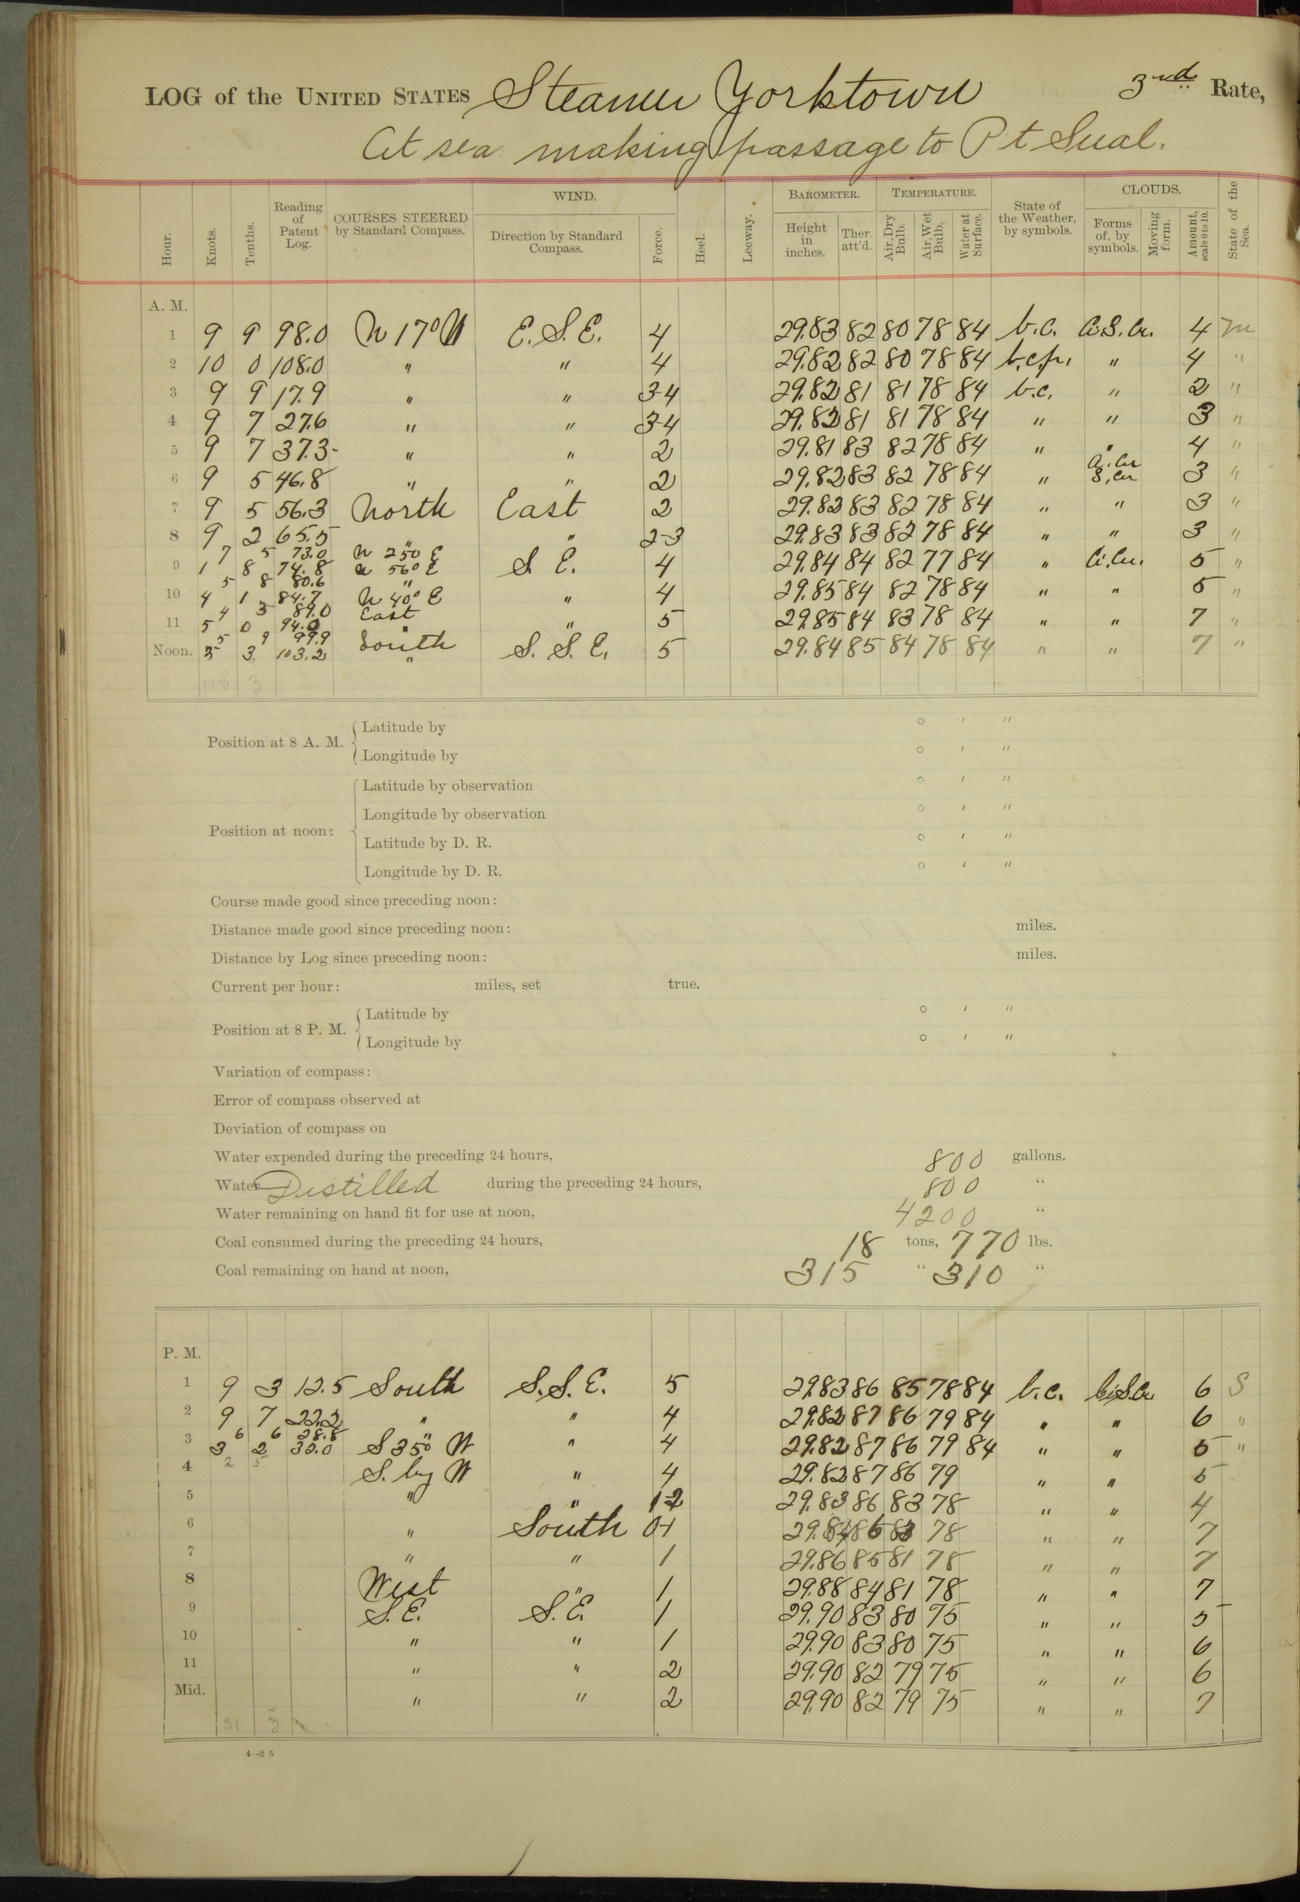 LOG of the UNITED STATES Steamer Yorktown 3rd Rate,
At sea making passage to Pt Sual.
Hour. Knots. Tenths. Reading of Patent Log. COURSES STEERED by Standard Compass. WIND. Direction by Standard Compass. Force. Heel. Leeway. BAROMETER. Height in inches. Ther. att'd. TEMPERATURE. Air, Dry Bulb. Air, Wet Bulb. Water at Surface. State of the Weather, by symbols. CLOUDS. Forms of, by symbols. Moving form. Amount, scale 0 to 10. State of the Sea.
A. M.
1 9 9 98.0 N 17° W E. S. E. 4 29.83 82 80 78 84 b.c. C.S.Cu. 4 m
2 10 0 108.0 " " 4 29.82 82 80 78 84 b.c.p. " 4 "
3 9 9 17.9 " " 3-4 29.82 81 81 78 84 b.c. " 2 "
4 9 7 27.6 " " 3-4 29.82 81 81 78 84 " " 3 "
5 9 7 37.3 " " 2 29.81 83 82 78 84 " " 4 "
6 9 5 46.8 " " 2 29.82 83 82 78 84 " C.Cu S.Cu 3 "
7 9 5 56.3 North East 2 29.82 83 82 78 84 " " 3 "
8 9 2 65.5 " " 2-3 29.83 83 82 78 84 " " 3 "
7 5 73.0 N 25° E
9 1 8 74.8 N 56° E S. E. 4 29.84 84 82 77 84 " C.Cu. 5 "
5 8 80.6 "
10 4 1 84.7 N 40° E " 4 29.85 84 82 78 84 " " 5 "
4 3 89.0 East
11 5 0 94.0 " " 5 29.85 84 83 78 84 " " 7 "
5 9 99.9 South
Noon. 3 3 103.2 " S. S. E. 5 29.84 85 84 78 84 " " 7 "
118 3
Position at 8 A. M. Latitude by ° ′ ″
Longitude by ° ′ ″
Position at noon: Latitude by observation ° ′ ″
Longitude by observation ° ′ ″
Latitude by D. R. ° ′ ″
Longitude by D. R. ° ′ ″
Course made good since preceding noon:
Distance made good since preceding noon: miles.
Distance by Log since preceding noon: miles.
Current per hour: miles, set true.
Position at 8 P. M. Latitude by ° ′ ″
Longitude by ° ′ ″
Variation of compass:
Error of compass observed at
Deviation of compass on
Water expended during the preceding 24 hours, 800 gallons.
Water Distilled during the preceding 24 hours, 800 "
Water remaining on hand fit for use at noon, 4200 "
Coal consumed during the preceding 24 hours, 18 tons, 770 lbs.
Coal remaining on hand at noon, 315 " 310 "
P. M.
1 9 3 12.5 South S.S.E. 5 29.83 86 85 78 84 b.c. C.S.Cu 6 S
2 9 7 22.2 " " 4 29.82 87 86 79 84 " " 6 "
6 6 28.8 "
3 3 2 32.0 S 35° W " 4 29.82 87 86 79 84 " " 5 "
4 2 5 S. by W " 4 29.82 87 86 79 " " 5
5 " " 1-2 29.83 86 83 78 " " 4
6 " South 0-1 29.84 86 83 78 " " 7
7 " " 1 29.86 85 81 78 " " 7
8 West " 1 29.88 84 81 78 " " 7
9 S.E. S.E. 1 29.90 83 80 75 " " 5
10 " " 1 29.90 83 80 75 " " 6
11 " " 2 29.90 82 79 75 " " 6
Mid. " " 2 29.90 82 79 75 " " 7
31 3
4-25